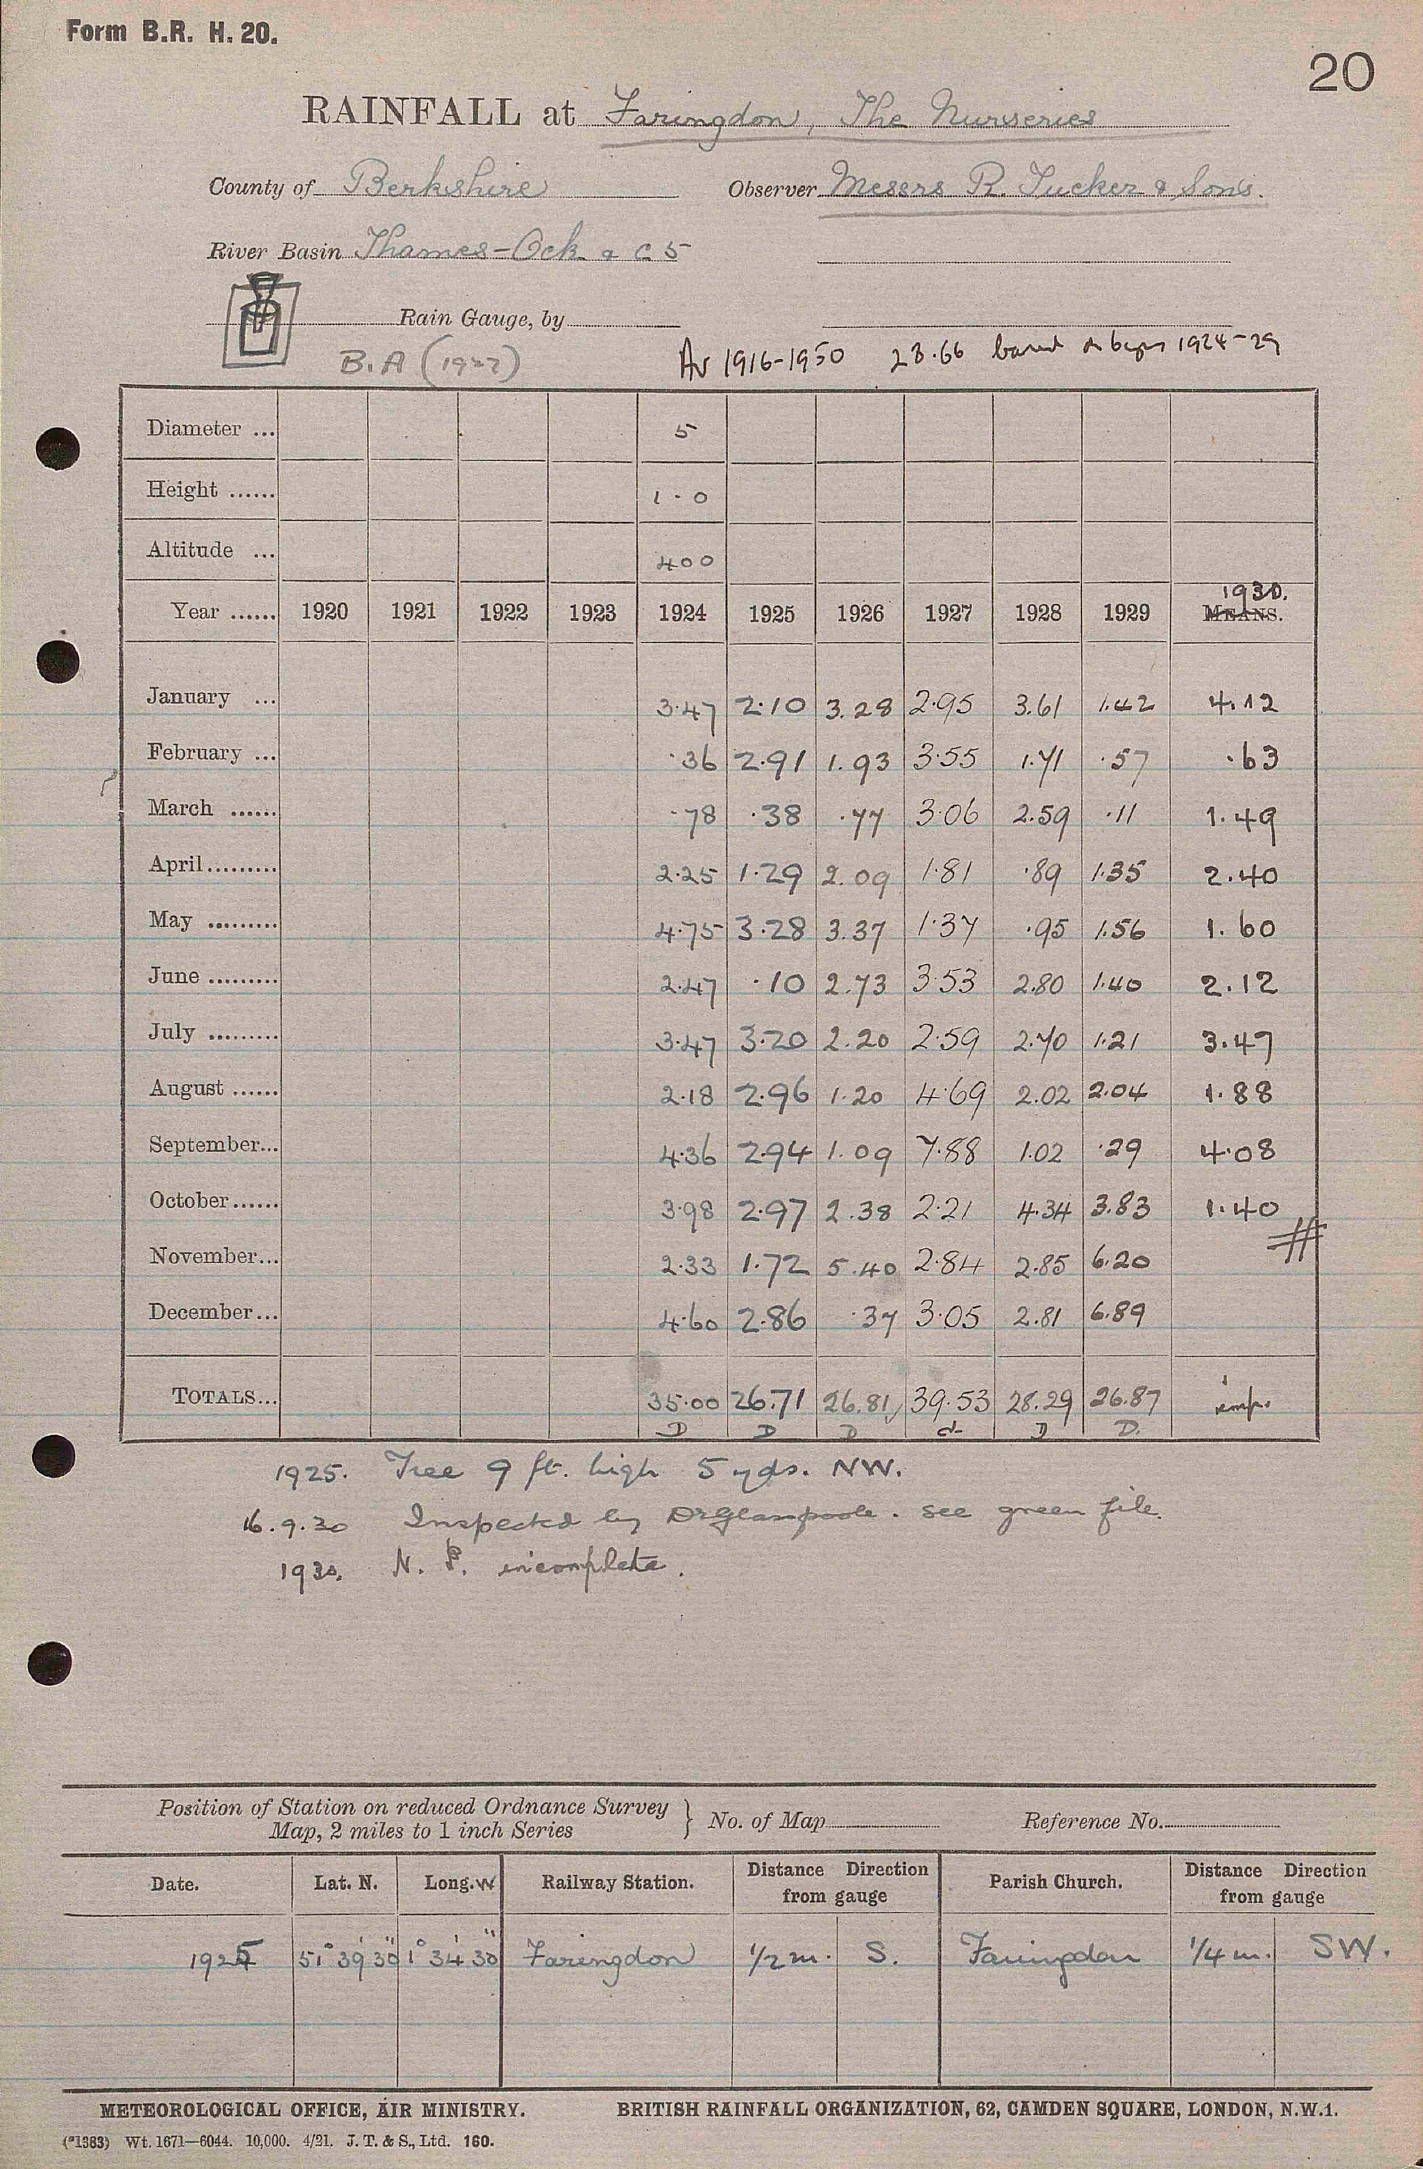 Form B.R. H. 20.
20
RAINFALL at Faringdon, The Nurseries
County of Berkshire Observer Messrs R. Tucker & Sons.
River Basin Thames-Ock & C 5
Rain Gauge, by
B.A (1927)
Av 1916-1950 28.66 based on 6 yrs 1924-29
Diameter ... 5
Height ...... 1-0
Altitude ... 400
1930.
Year ...... 1920 1921 1922 1923 1924 1925 1926 1927 1928 1929 MEANS.
January ... 3.47 2.10 3.28 2.95 3.61 1.42 4.12
February ... .36 2.91 1.93 3.55 1.71 .57 .63
March ...... .78 .38 .77 3.06 2.59 .11 1.49
April......... 2.25 1.29 2.09 1.81 .89 1.35 2.40
May ......... 4.75 3.28 3.37 1.37 .95 1.56 1.60
June ......... 2.47 .10 2.73 3.53 2.80 1.40 2.12
July ......... 3.47 3.20 2.20 2.59 2.70 1.21 3.47
August ...... 2.18 2.96 1.20 4.69 2.02 2.04 1.88
September... 4.36 2.94 1.09 7.88 1.02 .29 4.08
October...... 3.98 2.97 2.38 2.21 4.34 3.83 1.40
November... 2.33 1.72 5.40 2.84 2.85 6.20
December... 4.60 2.86 .37 3.05 2.81 6.89
TOTALS... 35.00 26.71 26.81 39.53 28.29 26.87 imp.
D D D d D D.
1925. Tree 9 ft. high 5 yds. NW.
16.9.30 Inspected by Dr Glasspoole. see green file.
1930. N. P. incomplete.
Position of Station on reduced Ordnance Survey
Map, 2 miles to 1 inch Series } No. of Map Reference No.
Date. Lat. N. Long. W Railway Station. Distance Direction from gauge Parish Church. Distance Direction from gauge
1925 51° 39' 30" 1° 34' 30" Faringdon 1/2 m. S. Faringdon 1/4 m. SW.
METEOROLOGICAL OFFICE, AIR MINISTRY. BRITISH RAINFALL ORGANIZATION, 62, CAMDEN SQUARE, LONDON, N.W.1.
(*1383) Wt. 1671—6044. 10,000. 4/21. J. T. & S., Ltd. 160.